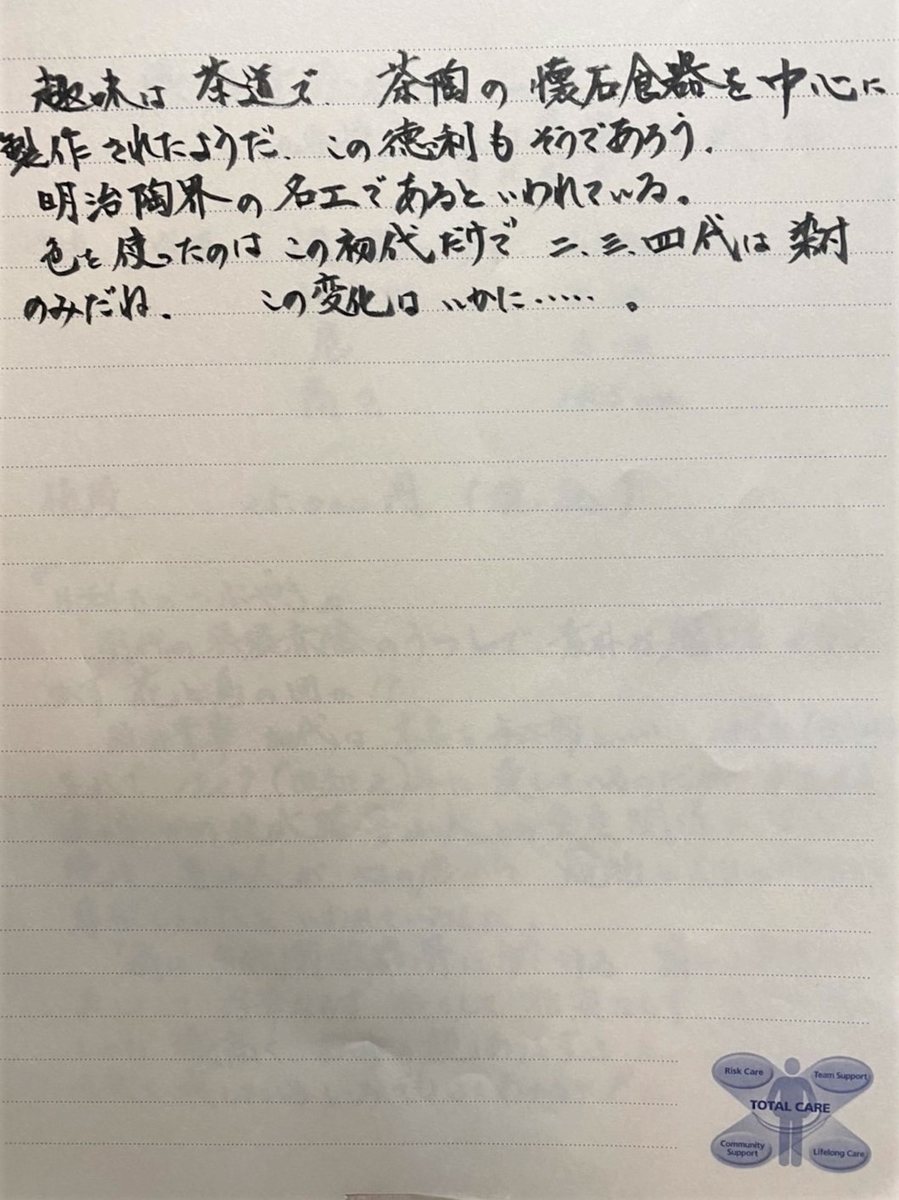 趣味は茶道で、茶陶の懐石食器を中心に
製作されたようだ、この徳利もそうであろう。
明治陶界の名工であるといわれている。
色を使ったのはこの初代だけで二、三、四代は染付
のみだね。この変化はいかに……。
Risk Care
Team Support
TOTAL CARE
Community
Support
Lifelong Care